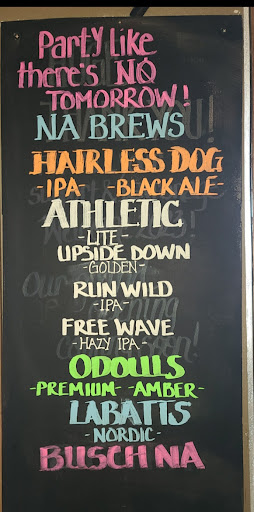 Party like
there's NO
TOMORROW!
NA BREWS
HAIRLESS DOG
-IPA- -BLACK ALE-
ATHLETIC
-LITE-
UPSIDE DOWN
-GOLDEN-
RUN WILD
-IPA-
FREE WAVE
-HAZY IPA-
ODOULS
-PREMIUM- -AMBER-
LABATTS
-NORDIC-
BUSCH NA